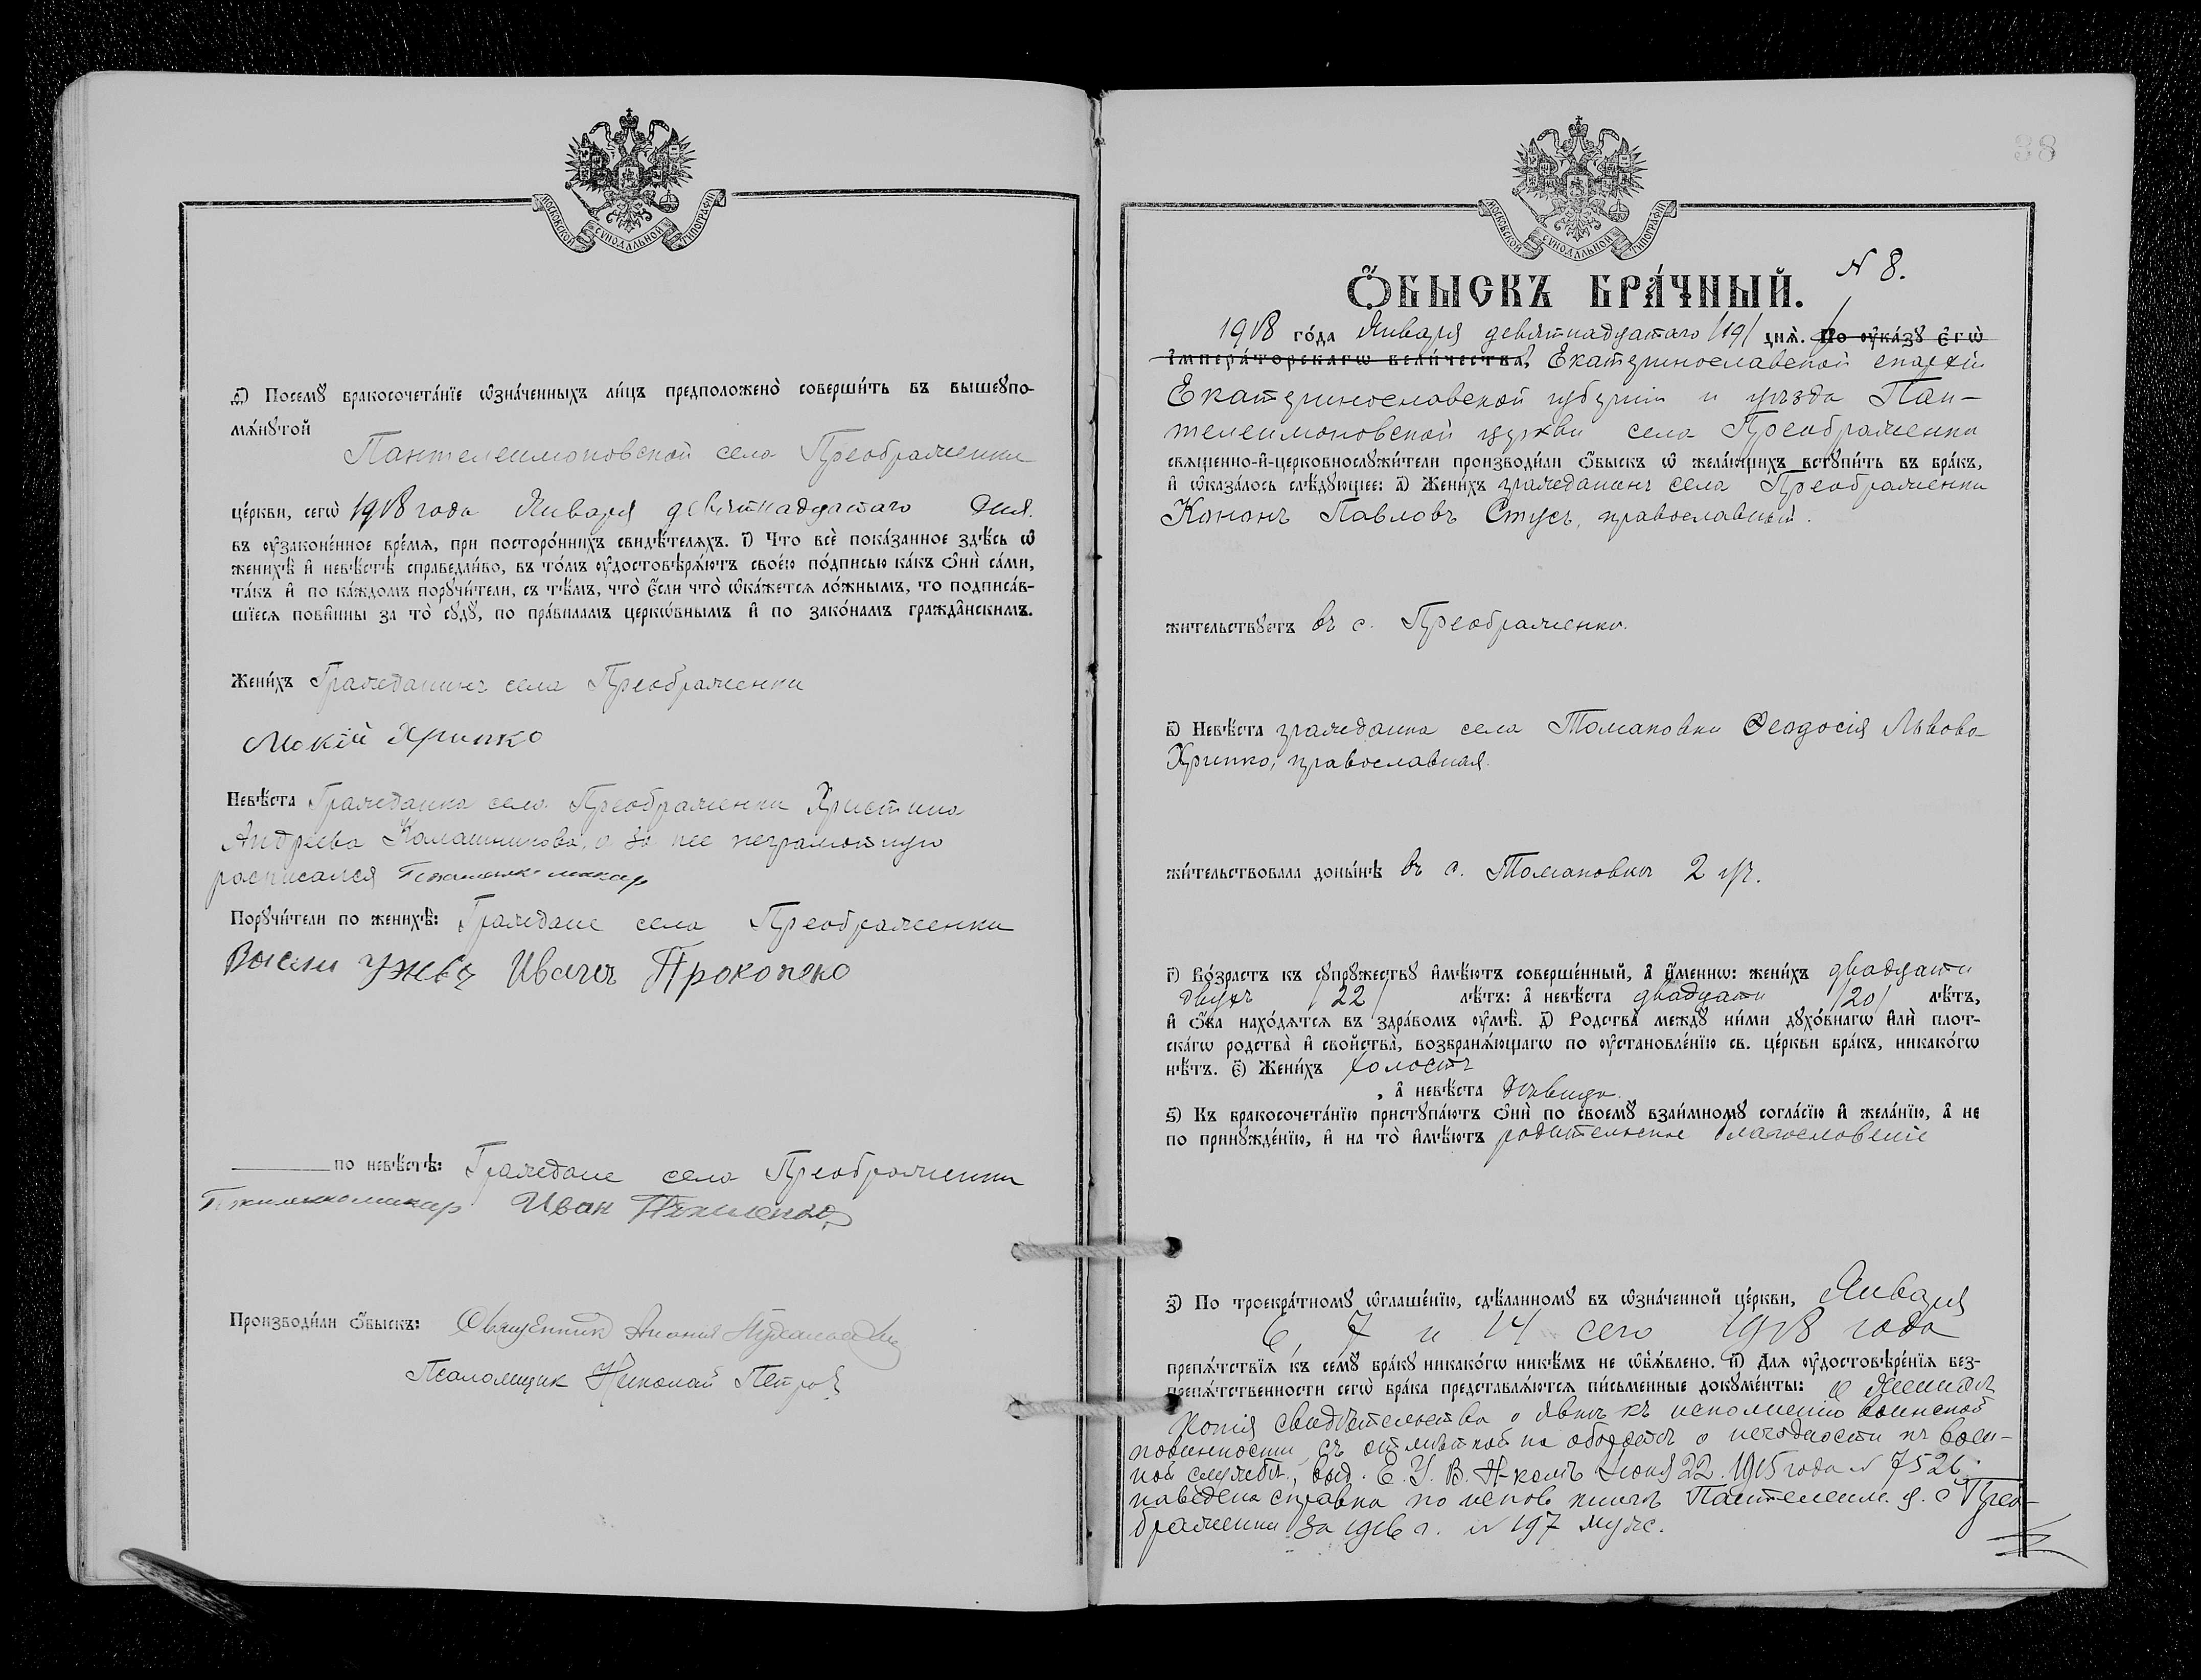 МОСКОВСКОЙ СѴНОДАЛЬНОЙ ТИПОГРАФІИ
д҃) Посемꙋ̀ бракосочета́нїе ѡ҆зна́ченныхъ ли́цъ предположено̀ соверши́ть въ вышеꙋпо-
мѧ́нꙋтой
Пантелеимоновской села Преображенки
це́ркви, сегѡ̀ 1918 года Января девятнадцатаго дня.
въ ᲂу҆законе́нное вре́мѧ, при посторо́ннихъ свидѣ́телѧхъ. і҃) Что всѐ пока́занное здѣ́сь ѡ҆
женихѣ̀ и҆ невѣ́стѣ справедли́во, въ то́мъ ᲂу҆достовѣрѧ́ютъ свое́ю по́дписью ка́къ ѻ҆нѝ са́ми,
та́къ и҆ по ка́ждомъ порꙋчи́тели, съ тѣ́мъ, что̀ є҆́сли что̀ ѡ҆ка́жетсѧ ло́жнымъ, то подписа́в-
шїесѧ пови́нны за то̀ сꙋдꙋ̀, по пра́виламъ церко́внымъ и҆ по зако́намъ гражда́нскимъ.
Жени́хъ Гражданинъ села Преображенки
Мокій Хрипко
Невѣ́ста Гражданка села Преображенки Христина
Андреева Калашникова, а за нее неграмотную
расписался
Порꙋчи́тели по женихѣ̀: Граждане села Преображенки
Ужва Иванъ Прокопенко
по невѣ́стѣ: Граждане села Преображенки
Иван
Производи́ли ѻ҆́быскъ: Священник
Псаломщик Николай Петров
38
МОСКОВСКОЙ СѴНОДАЛЬНОЙ ТИПОГРАФІИ
N 8.
Ѻ҆́БЫСКЪ БРА́ЧНЫЙ.
1918 го́да Января девятнадцатаго /19/ днѧ̀. По ᲂу҆ка́зꙋ є҆гѡ̀
і҆мпера́торскагѡ вели́чества, Екатеринославской епархіи
Екатеринославской губерніи и уѣзда Пан-
телеимоновской церкви села Преображенки
свѧще́нно-и҆-церковнослꙋжи́тели производи́ли ѻ҆́быскъ ѡ҆ жела́ющихъ встꙋпи́ть въ бра́къ,
и҆ ѡ҆каза́лось слѣ́дꙋющее: а҃) Жени́хъ гражданинъ села Преображенки
Кононъ Павловъ Стусъ, православный.
жи́тельствꙋетъ въ с. Преображенки.
в҃) Невѣ́ста гражданка села Томаковки Ѳеодосія Львова
Хрипко, православная.
жи́тельствовала доны́нѣ въ с. Томаковкѣ 2 уч.
г҃) Во́зрастъ къ сꙋпрꙋ́жествꙋ и҆мѣ́ютъ соверше́нный, а҆ и҆́меннѡ: жени́хъ двадцати
двухъ /22/ лѣ́тъ: а҆ невѣ́ста двадцати /20/ лѣ́тъ,
и҆ ѻ҆́ба нахо́дѧтсѧ въ здра́вомъ ᲂу҆мѣ̀. д҃) Родства̀ междꙋ̀ ни́ми дꙋхо́внагѡ и҆лѝ плот-
ска́гѡ родства̀ и҆ свойства̀, возбранѧ́ющагѡ по ᲂу҆становле́нїю св. це́ркви бра́къ, никако́гѡ
нѣ́тъ. є҃) Жени́хъ холостъ
, а҆ невѣ́ста дѣвица.
ѕ҃) Къ бракосочета́нїю пристꙋпа́ютъ ѻ҆нѝ по своемꙋ̀ взаи́мномꙋ согла́сїю и҆ жела́нїю, а҆ не
по принꙋжде́нїю, и҆ на то̀ и҆мѣ́ютъ родительское благословеніе
з҃) По троекра́тномꙋ ѡ҆глаше́нїю, сдѣ́ланномꙋ въ ѡ҆зна́ченной це́ркви, Января
6, 7 и 14 сего 1918 года
препѧ́тствїѧ къ семꙋ̀ бра́кꙋ никако́гѡ никѣ́мъ не ѡ҆б̾ѧ́влено. и҃) Длѧ ᲂу҆достовѣре́нїѧ без-
препѧ́тственности сегѡ̀ бра́ка представлѧ́ютсѧ пи́сьменные докꙋме́нты: о женихѣ
копія свидѣтельства о явкѣ къ исполненію воинской
повинности съ отмѣткой на оборотѣ о негодности къ воен-
ной службѣ, выд. Е. У. В. Н-комъ Іюня 22. 1915 года N 7526;
наведена справка по испов книгѣ Пантелеим. ц. с Прео-
браженки за 1916 г. N 197 муж.